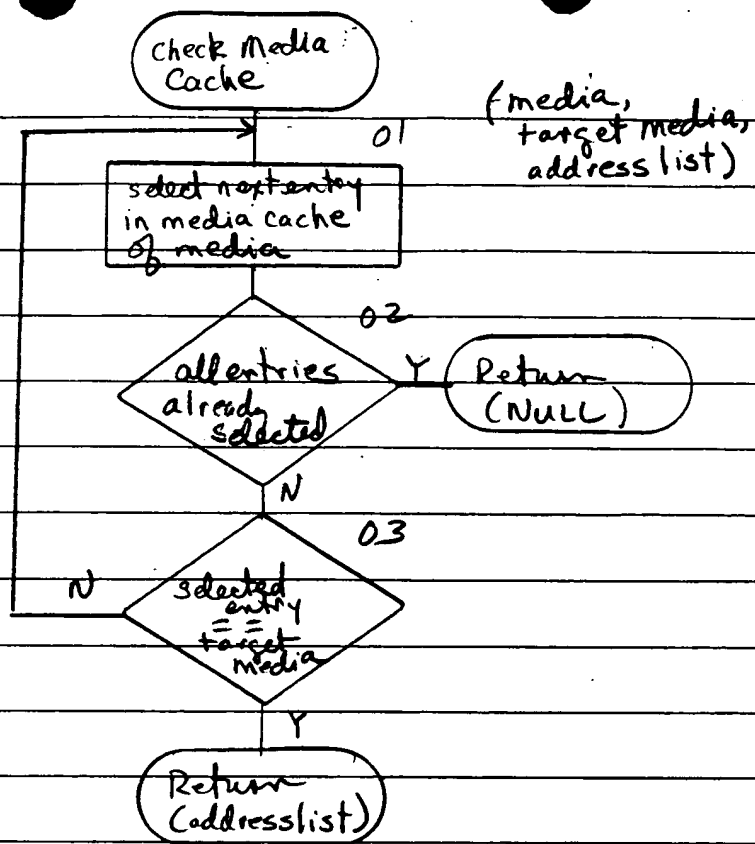 check Media
Cache
(media,
target media,
address list)
01
select next entry
in media cache
of media
02
all entries
already
selected
Y
Return
(NULL)
N
03
selected
entry
= =
target
media
N
Y
Return
(addresslist)